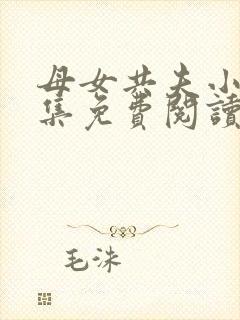 母女共夫小
集免費閱讀
毛洙